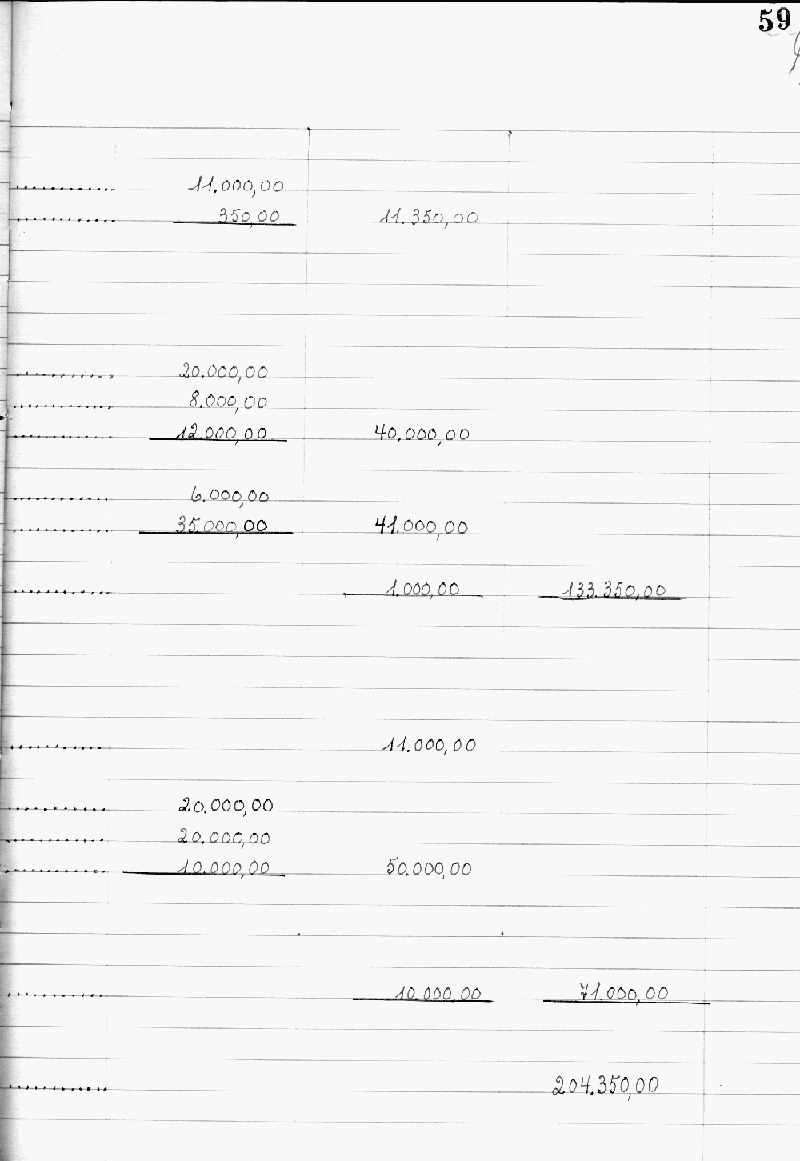 59
11.000,00
350,00 11.350,00
20.000,00
8.000,00
12.000,00 40.000,00
6.000,00
35.000,00 41.000,00
1.000,00 133.350,00
11.000,00
20.000,00
20.000,00
10.000,00 50.000,00
10.000,00 71.000,00
204.350,00